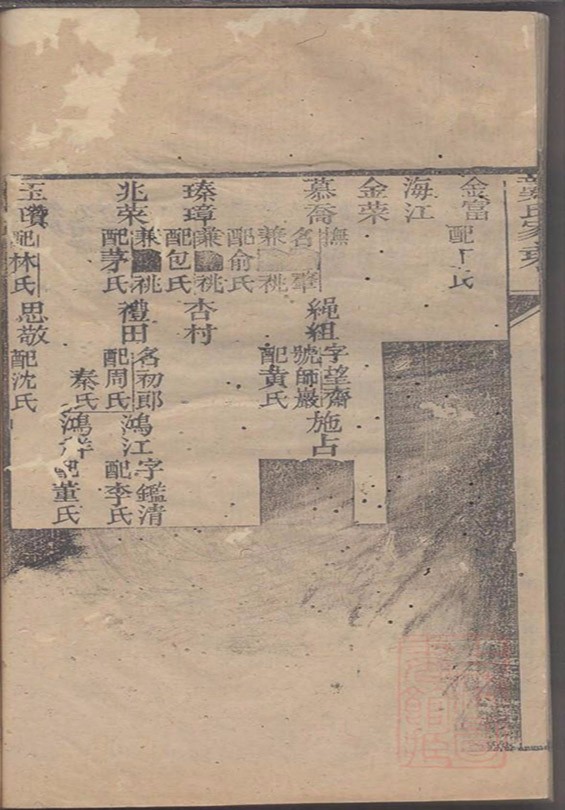 吳氏家乘
金富 配丁氏
海江
金荣
慕喬 撫名肇 兼祧 配俞氏 繩組 字望齋 號師巖 配黃氏 施占
瑧璋 兼祧 配包氏 杏村
兆荣 兼祧 配茅氏 禮田 名初郎 配周氏 鴻江 字鑑清 配李氏
秦氏 鴻 配董氏
玉 配林氏 思敬 配沈氏